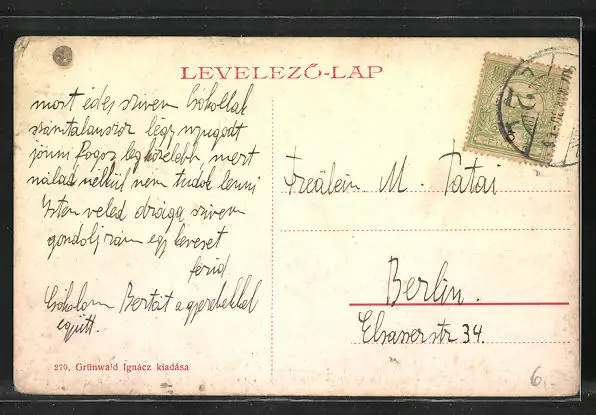 LEVELEZŐ-LAP
most édes szivem Csókollak
számtalanszor légy nyugodt
jönni fogsz legközelebb, mert
nálad nélkül nem tudok lenni
Isten veled drága szivem
gondolj rám egy keveset
ferid
Csókolom Bertát a gyerekekkel
együtt.
270. Grünwald Ignácz kiadása
5
Freälein M. Tatai
Berlin.
Elsasserstr 34.
6.